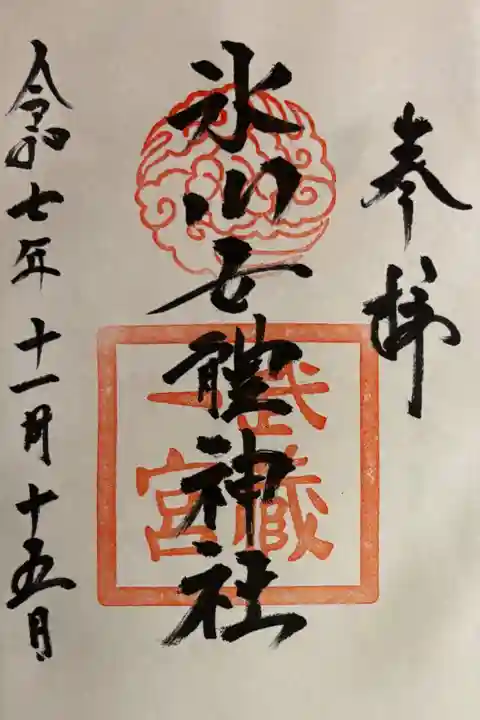 奉拝
氷川女體神社
武蔵
一宮
令和七年十一月十五日